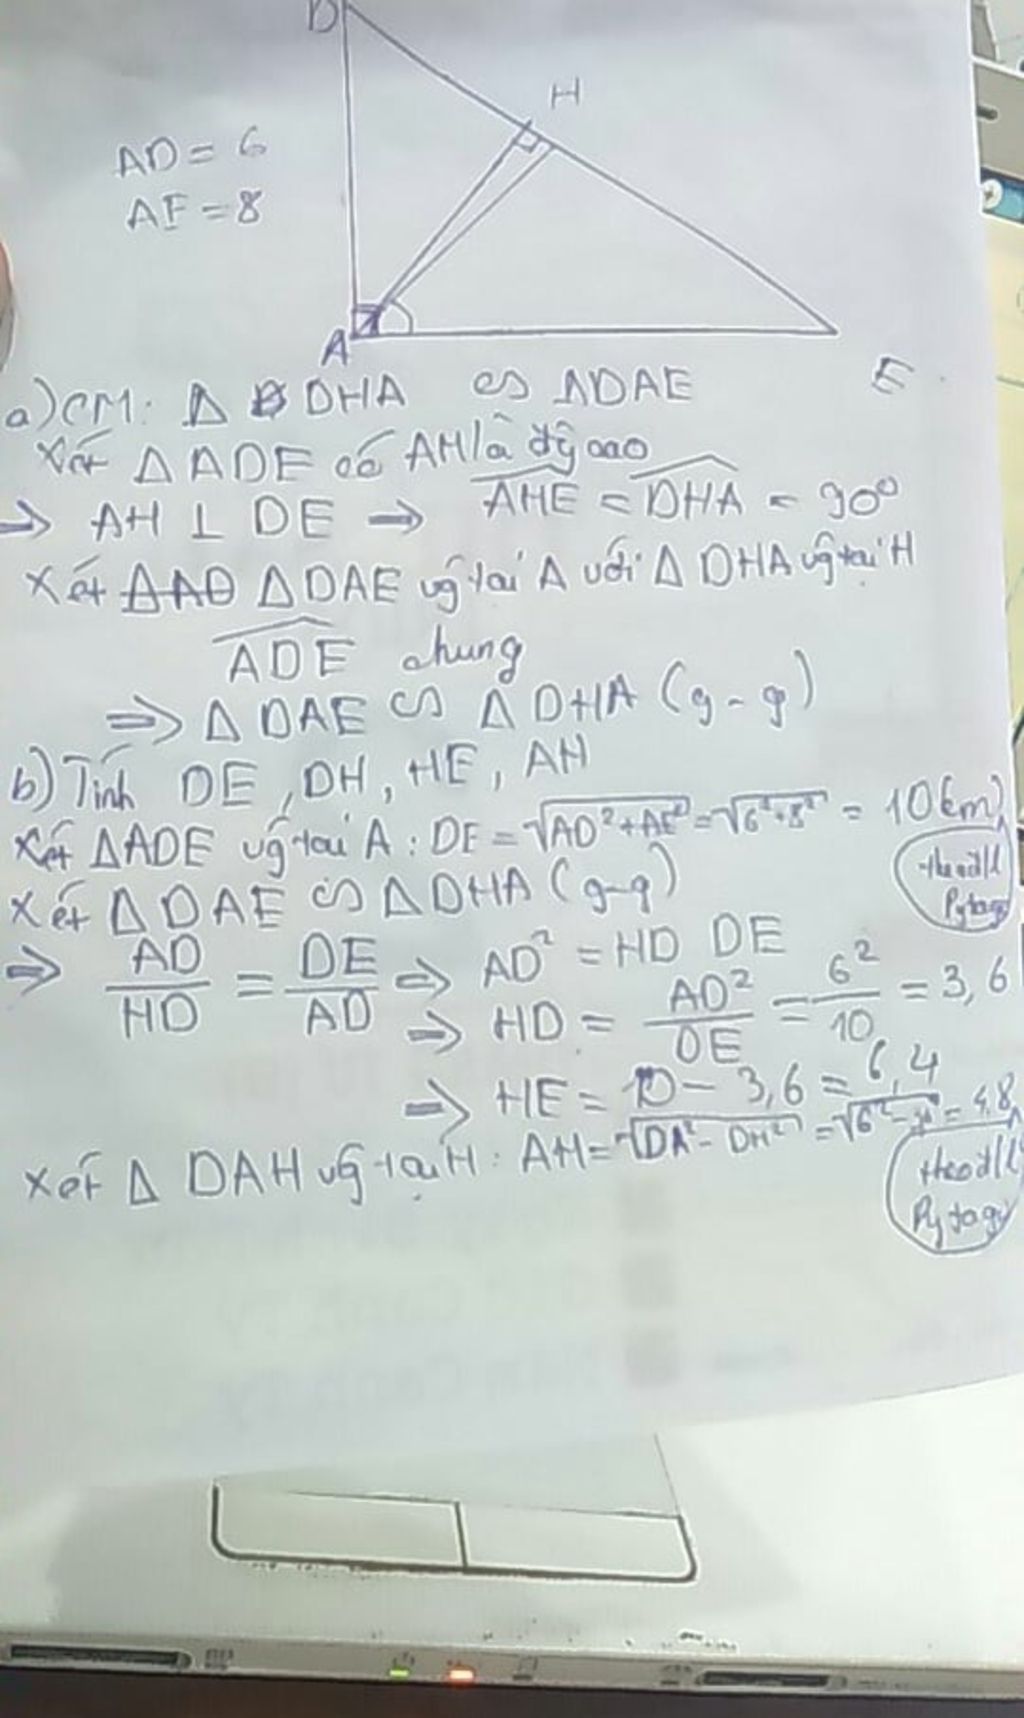 D
H
AD = 6
AE = 8
A
E
a) CM: Δ DHA ∽ ΔDAE
Xét Δ ADE có AH là đg cao
⇒ AH ⊥ DE ⇒ \widehat{AHE} = \widehat{DHA} = 90⁰
Xét ΔDAE vg tại A với Δ DHA vg tại H
\widehat{ADE} chung
⇒ Δ DAE ∽ Δ DHA (g-g)
b) Tính DE, DH, HE, AH
Xét ΔADE vg tại A: DE = √(AD² + AE²) = √(6² + 8²) = 10(cm)
theo đll
Pytago
Xét Δ DAE ∽ Δ DHA (g-g)
⇒ AD/HD = DE/AD ⇒ AD² = HD DE
⇒ HD = AD²/DE = 6²/10 = 3,6
⇒ HE = 10 - 3,6 = 6,4
Xét Δ DAH vg tại H: AH = √(DA² - DH²) = √(6² - = 4,8
theo đll
Pytago